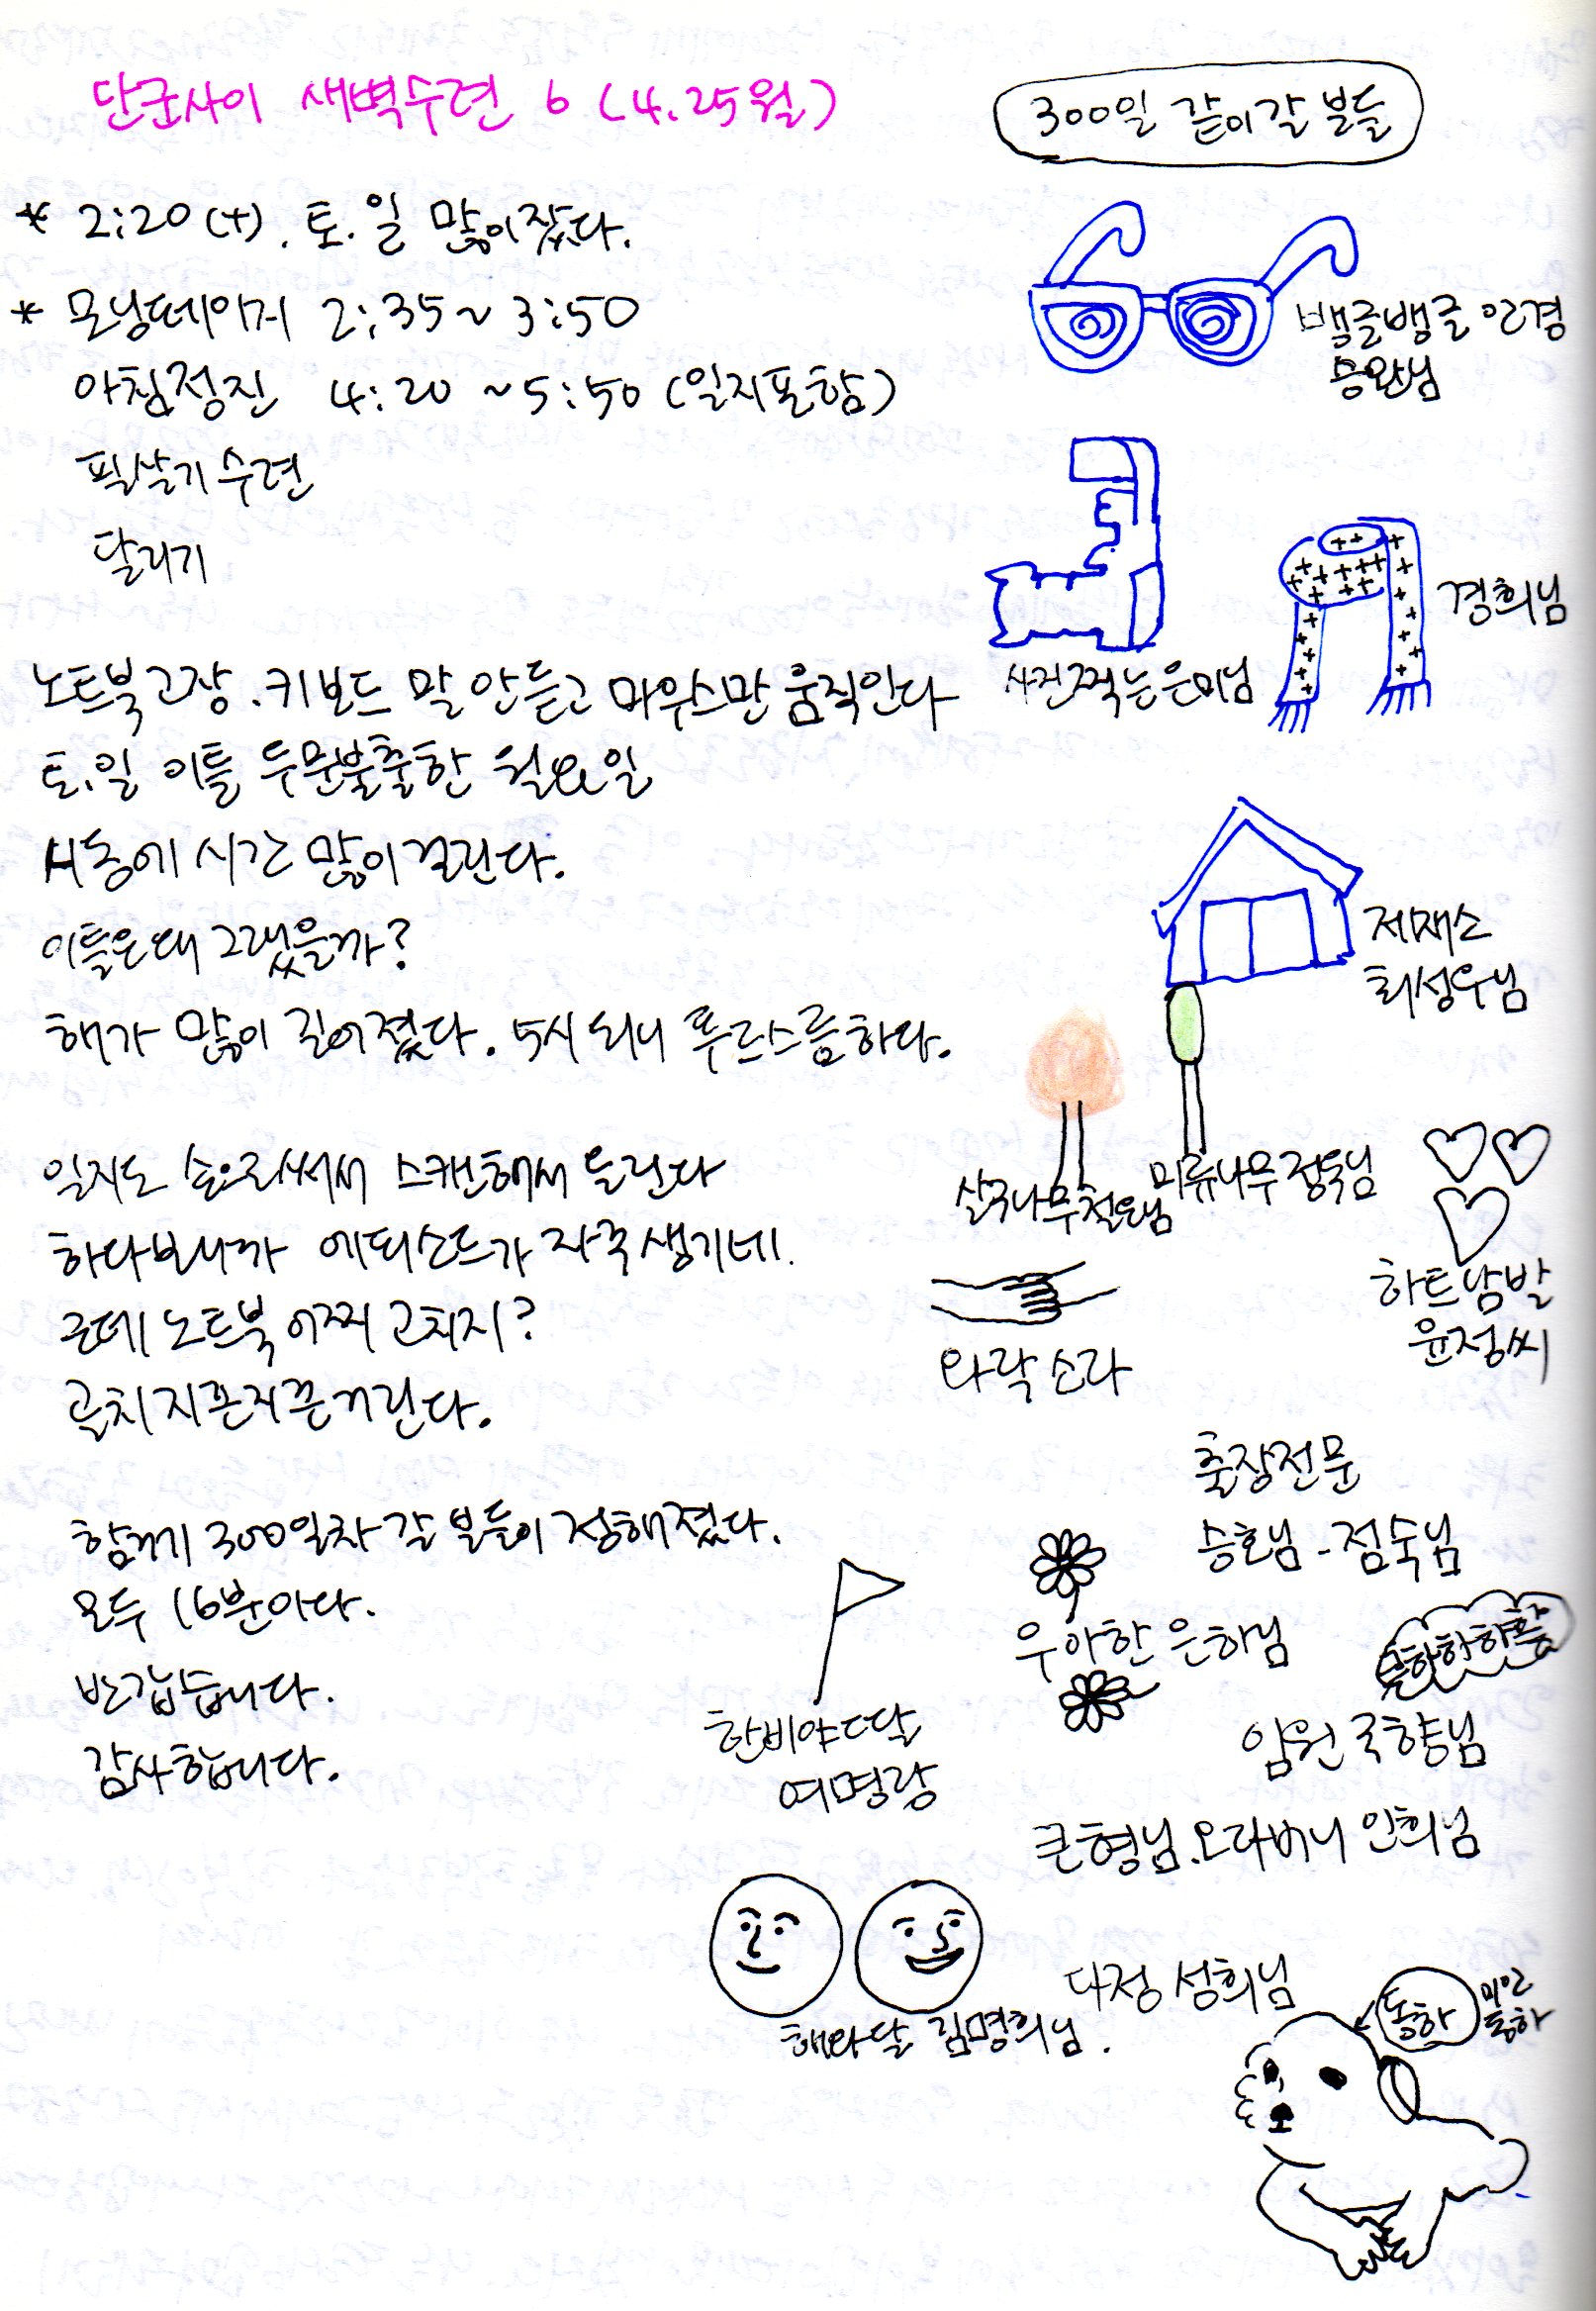 단군사이 새벽수련 6 (4.25월)
* 2:20 (+). 토.일 많이잤다.
* 모닝페이지 2:35~3:50
아침정진 4:20 ~5:50 (일지포함)
필살기 수련
달리기
노트북 고장. 키보드 말 안듣고 마우스만 움직인다
토.일 이틀 두문불출한 월요일
시동에 시간 많이걸린다.
이틀은 왜 그랬을까?
해가 많이 길어졌다. 5시 되니 푸르스름하다.
일지도 손으로써서 스캔해서 올린다
하다보니까 에피소드가 자꾸생기네.
근데 노트북 어찌 고치지?
골치 지끈지끈거린다.
함께 300일차 갈 분들이 정해졌다.
모두 16분이다.
반갑습니다.
감사합니다.
300일 같이갈 분들
뱅글뱅글 안경
승완님
사진찍는 은미님
경희님
제재소
최성우님
살구나무 철민님
미류나무 정욱님
하트남발
윤정씨
와락 소라
출장전문
승호님 - 점숙님
우아한 은하님
임원 국향님
한비야딸
여명랑
큰형님.오라버니 인희님
다정 성희님
해와달 김명희님.
동하
미인
동하